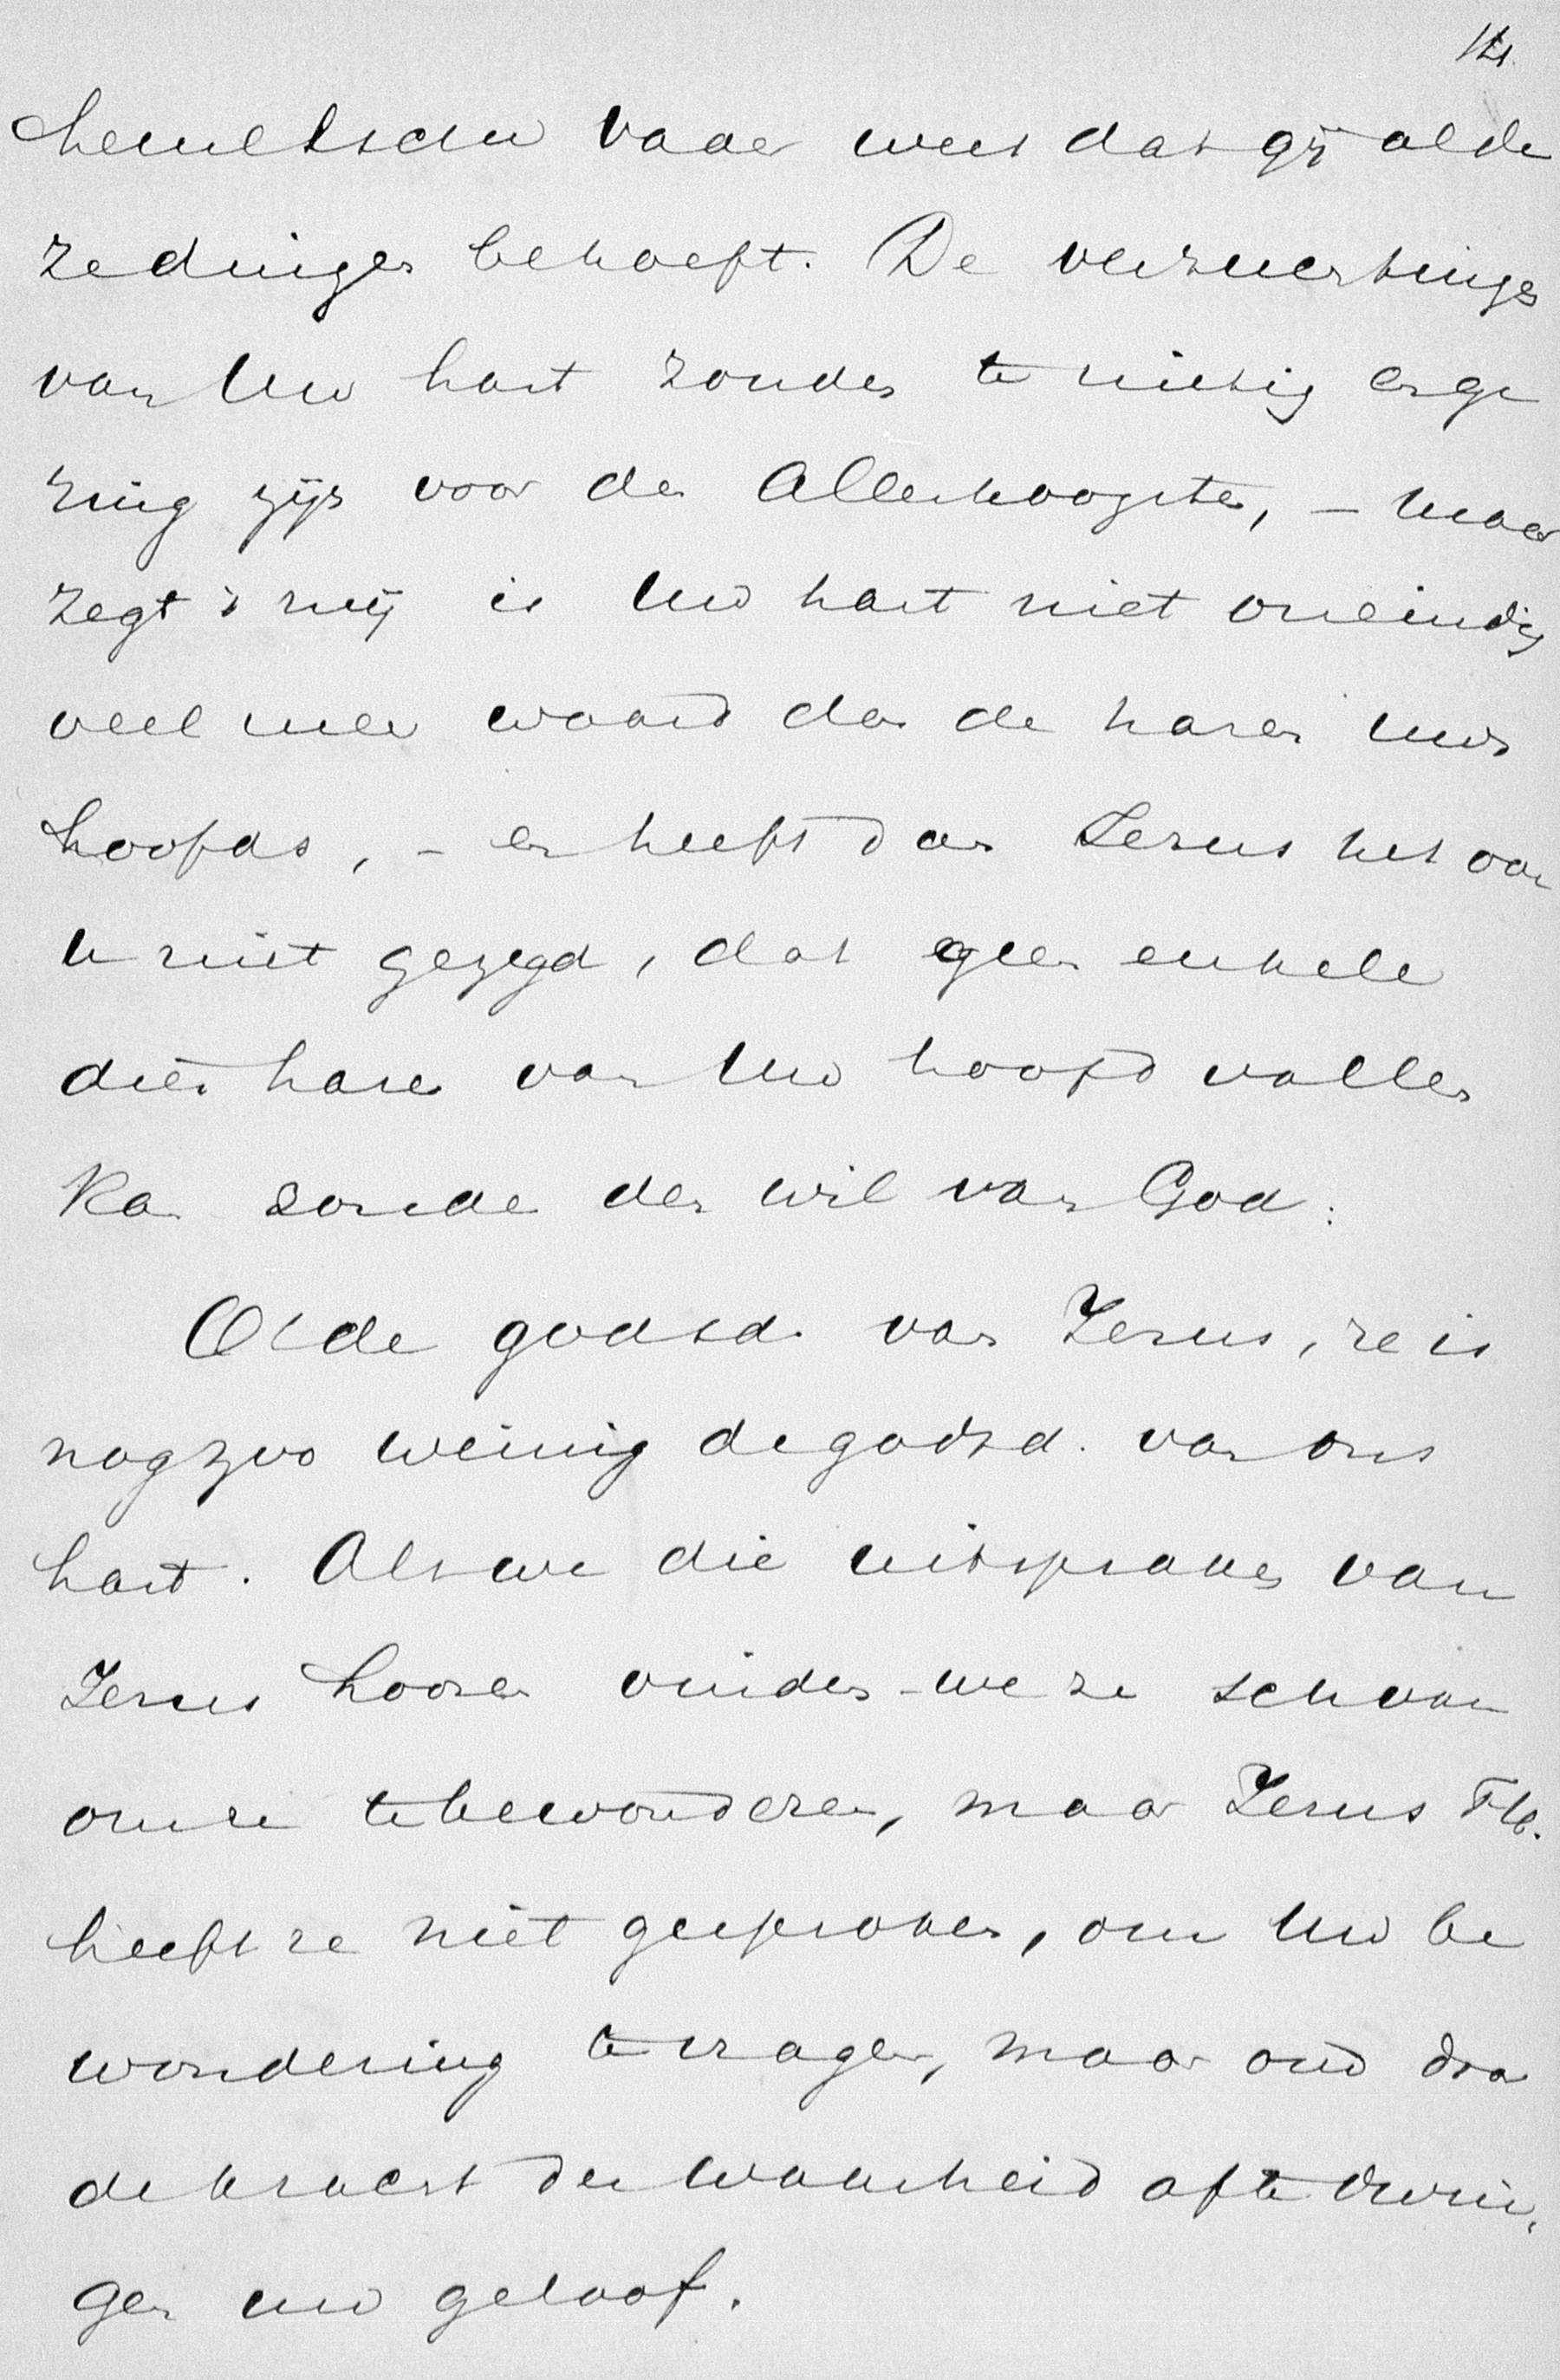 hemelschen vader weet dat gij al de
ze dingen behoeft. De verzuchtingen
van Uw hart zouden te nietig
zijn voor den Allerhoogsten, – maar
zegt mij is Uw hart niet oneindig
veel meer waard dan de haren uws
hoofds, – en heeft dan Jezus het van
U niet gezegd, dat geen enkele
dier haren van Uw hoofd vallen
kan zonder den wil van God.
O! de godsd. van Jezus, ze is
nog zoo weinig de godsd. van ons
hart. Als we die uitspraken van
Jezus hooren vinden we ze schoon
om ze te bewonderen, maar Jezus
heeft ze niet gesproken, om Uw be
wondering te vragen, maar om door
de kracht der waarheid af te dwin,
gen uw geloof.